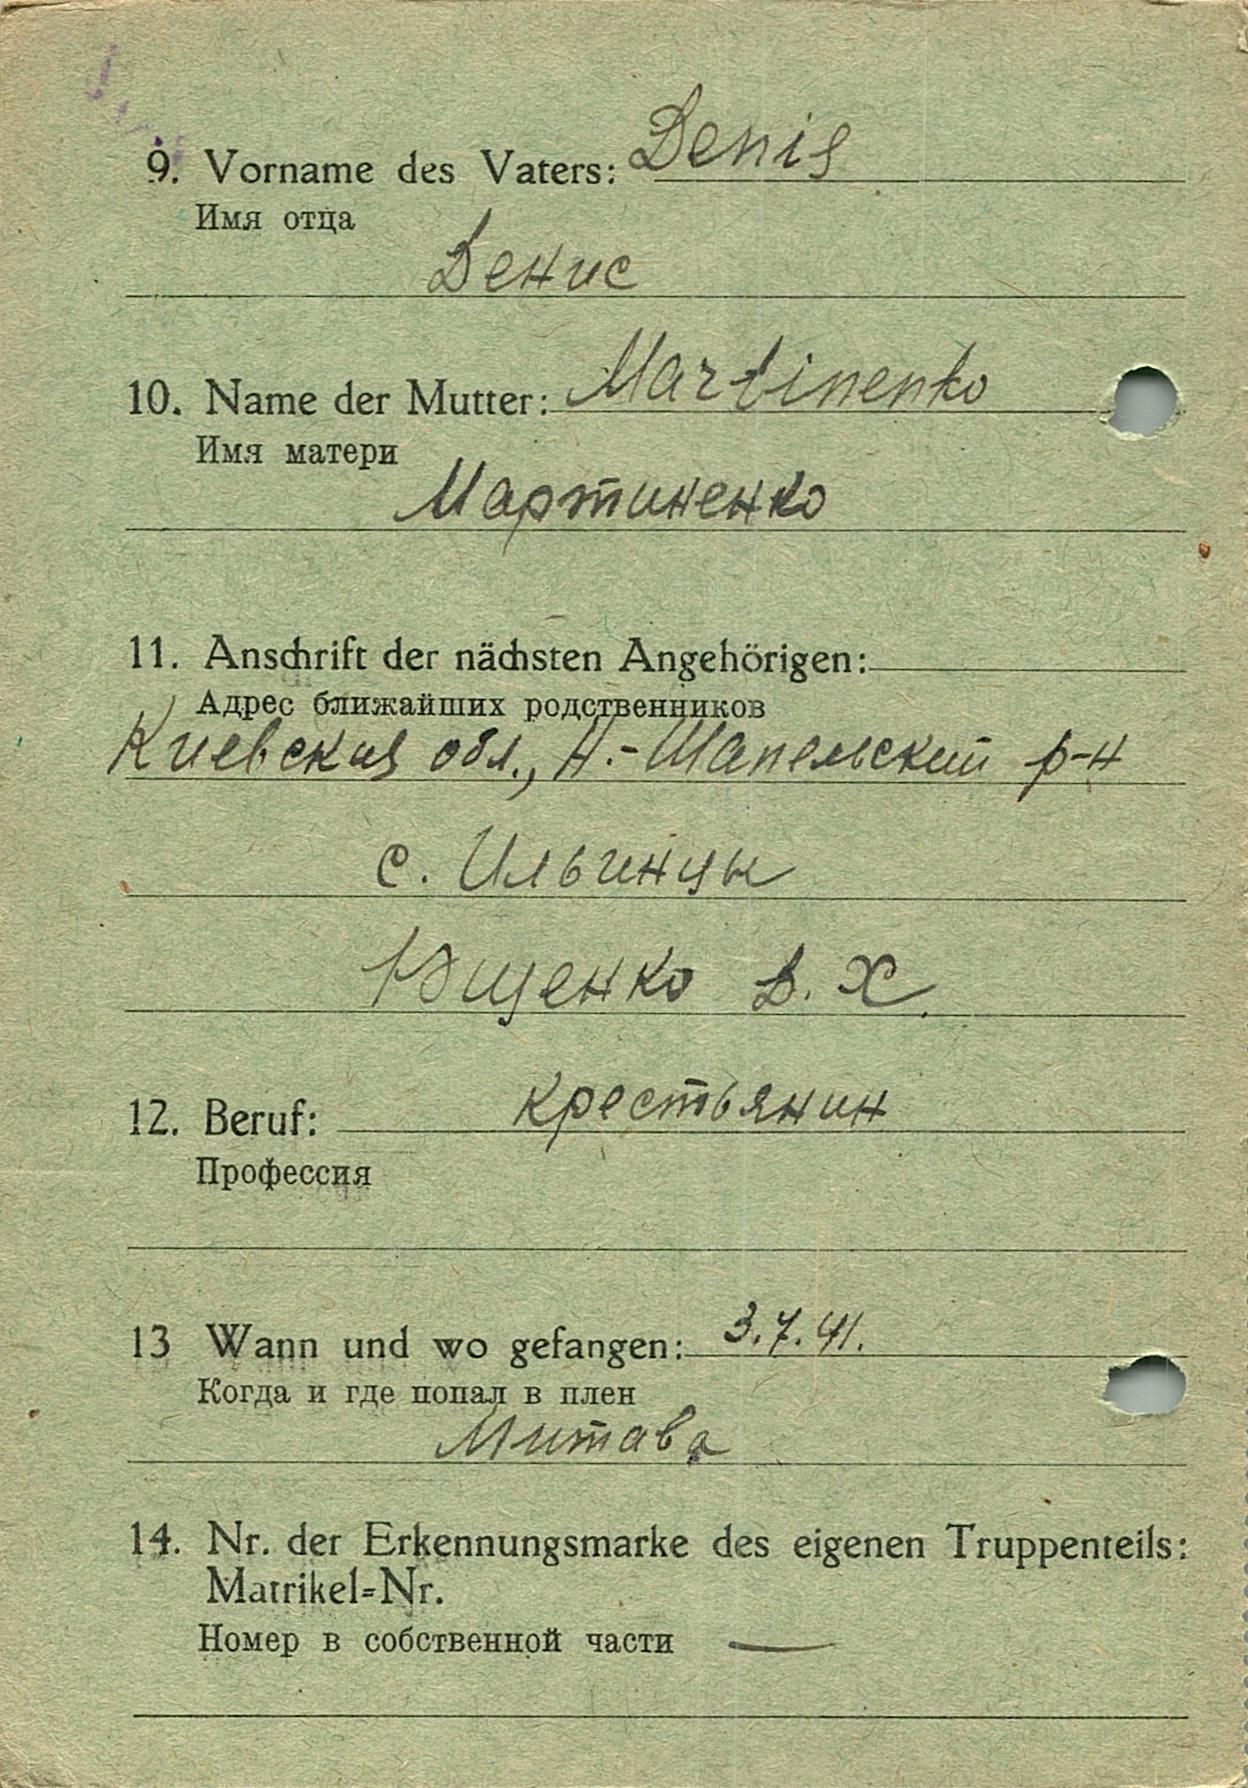 9. Vorname des Vaters: Denis
Имя отца
Денис
10. Name der Mutter: Martinenko
Имя матери
Мартиненко
11. Anschrift der nächsten Angehörigen:
Адрес ближайших родственников
Киевская обл., Н.-Шапельский р-н
с. Ильинцы
Ющенко В. Х.
12. Beruf: крестьянин
Профессия
13 Wann und wo gefangen: 3.7.41.
Когда и где попал в плен
Митава
14. Nr. der Erkennungsmarke des eigenen Truppenteils:
Matrikel-Nr.
Номер в собственной части —